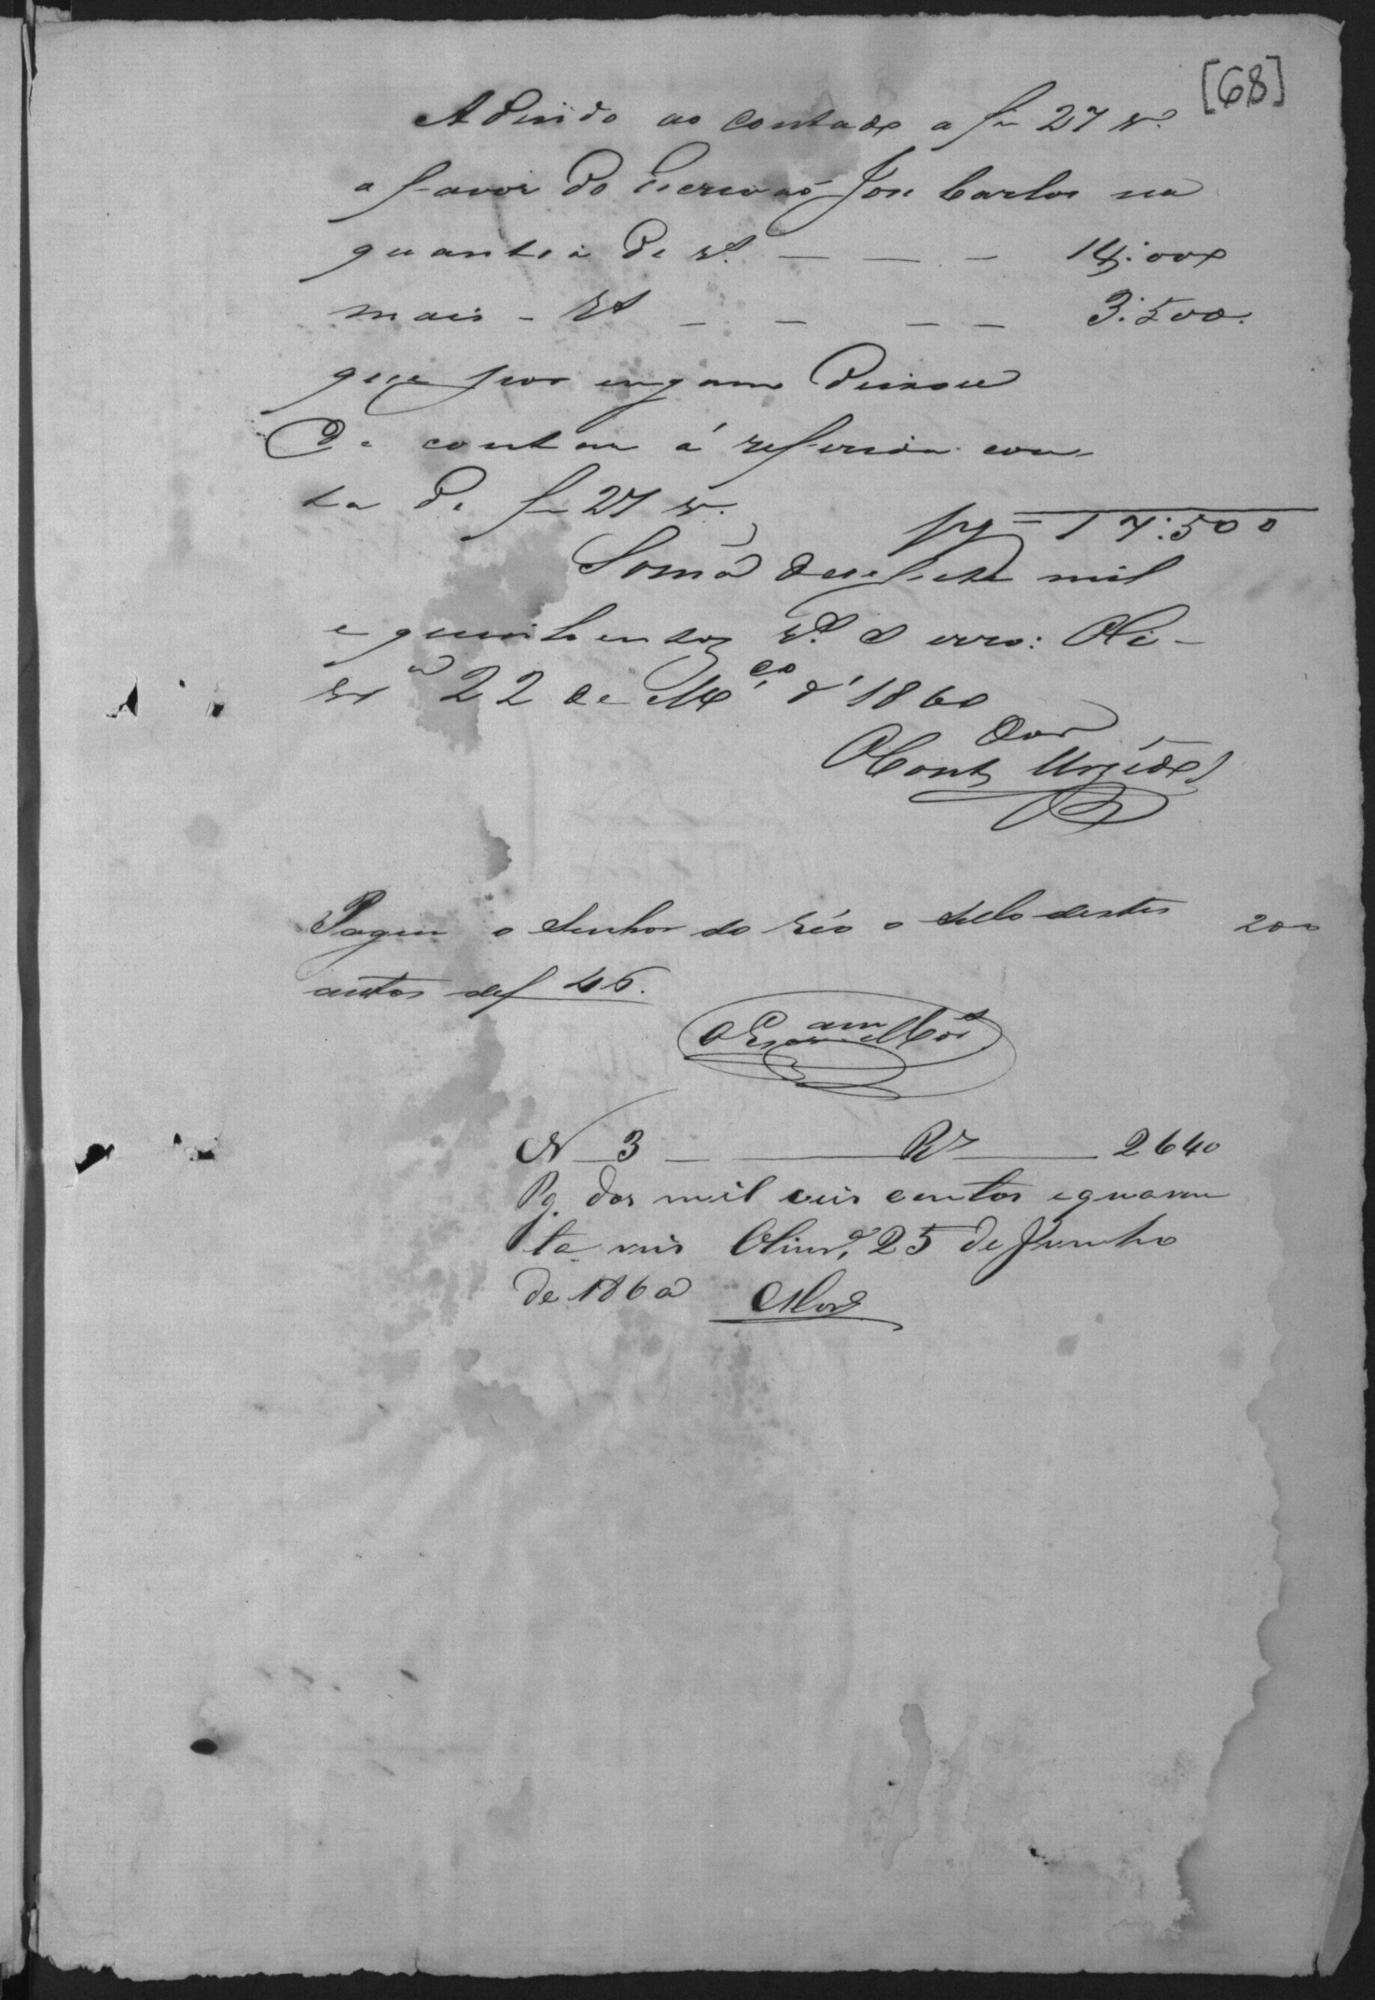 [68]
Addindo ao contado a f 27 v.
a favor do Escrivaõ Jose Carlos na
quantia de rs. — — — 14:000
mais - rs — — — — 3:500.
que por engano deixou
de contar á referida con-
ta de f 27 v.
pg = 17:500
Soma desesete mil
e quinhentos rs. S erro: Oli-
22 de M.ço d'1860
Dor
Pague o Senhor do reo o sello destes 200
autos de f 46.
N 3 — — Rs — 2640
Pg. dos mil seis centos e quaren
ta reis Olind.ª 25 de Junho
de 1860